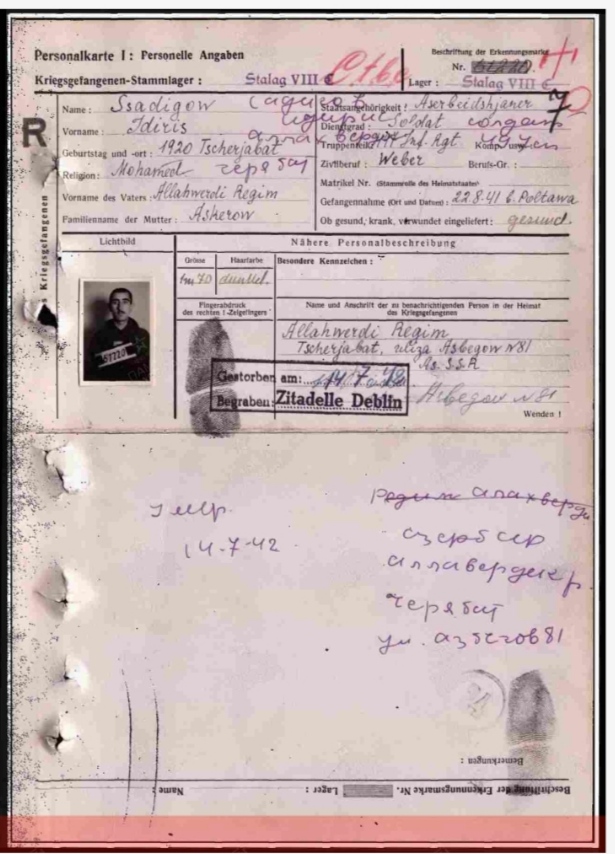 Personalkarte I: Personelle Angaben
Kriegsgefangenen-Stammlager: Stalag VIII C
Beschriftung der Erkennungsmarke
Nr. 61220
Lager: Stalag VIII C
R
des Kriegsgefangenen
Name: Ssadigow Садигов
Vorname: Idiris
Geburtstag und -ort: 1920 Tscherjabat
Religion: Mohamed черябат
Vorname des Vaters: Allahwerdi Regim
Familienname der Mutter: Askerow
Staatsangehörigkeit: Aserbeidshjaner
Dienstgrad: Soldat
Truppenteil: Inf. Rgt. Komp. usw.:
Zivilberuf: Weber Berufs-Gr.:
Matrikel Nr. (Stammrolle des Heimatstaates)
Gefangennahme (Ort und Datum): 22.8.41 b. Poltawa
Ob gesund, krank, verwundet eingeliefert: gesund.
Lichtbild
Nähere Personalbeschreibung
Grösse Haarfarbe Besondere Kennzeichen:
1m70 dunkel.
Fingerabdruck
des rechten !-Zeigefingers
Name und Anschrift der zu benachrichtigenden Person in der Heimat
des Kriegsgefangenen
61220
Allahwerdi Regim
Tscherjabat, uliza Asbegow N81
As. S.S.R
Gestorben am: 14.7.42
Begraben: Zitadelle Deblin
Asbegow N 81
Wenden !
умер.
14-7-42
Редим алахверди
азербсср
черябат
ул. азбегов 81
Bemerkungen:
Beschriftung der Erkennungsmarke Nr. Lager: Name